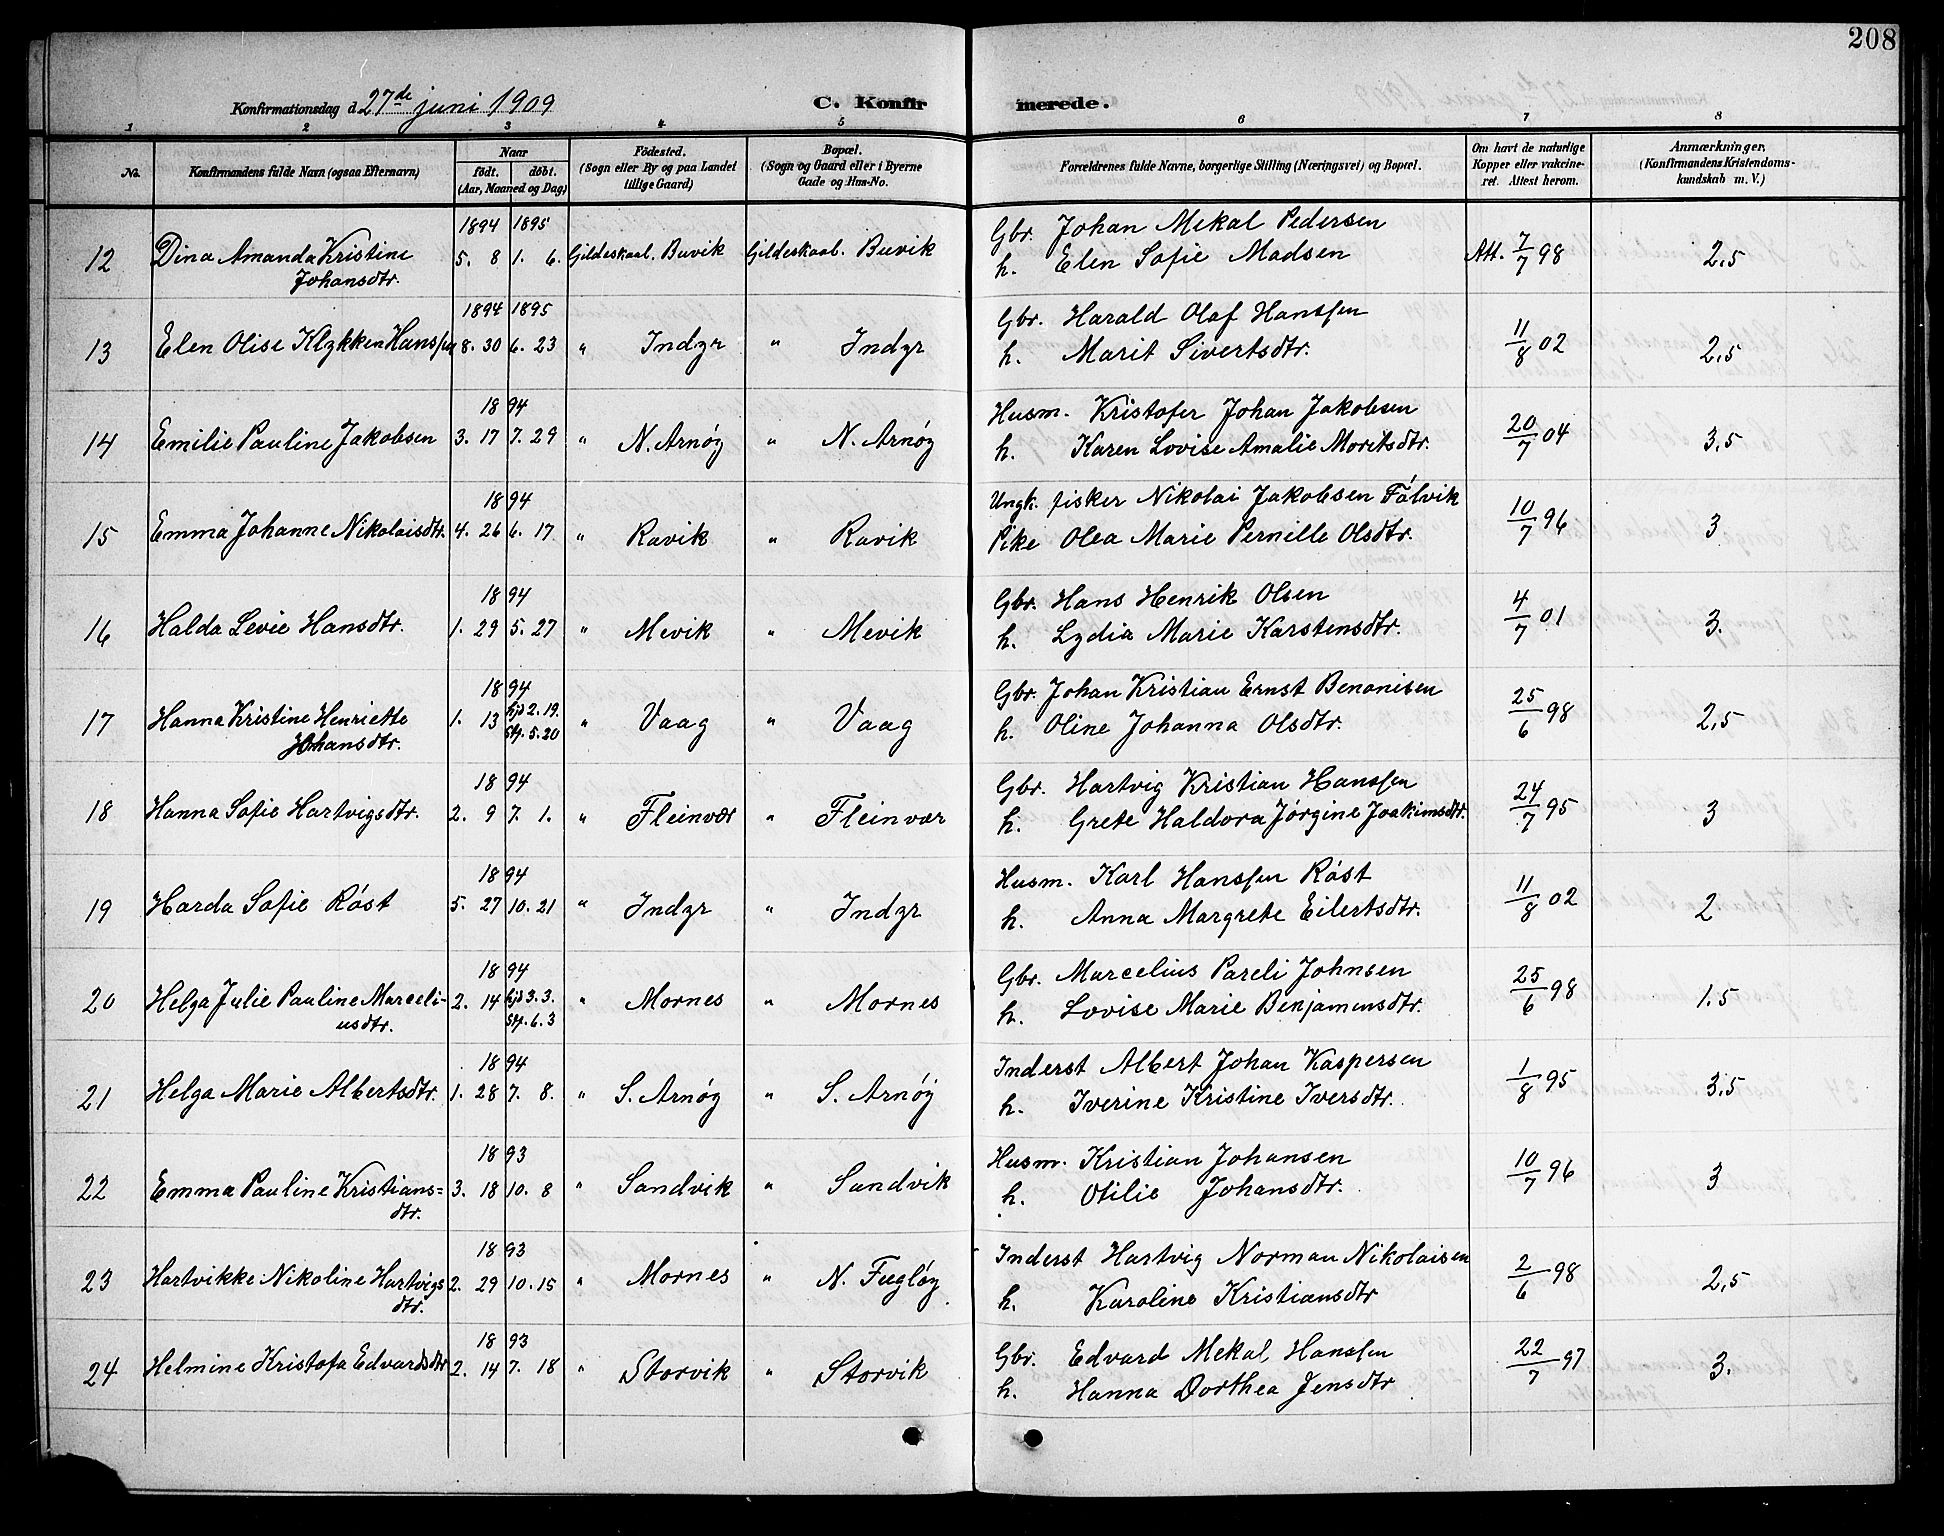 208
Konfirmationsdag d. 27de juni 1909 C. Konfirmerede.
1 2 3 4 5 6 7 8
No. Konfirmandens fulde Navn (ogsaa Efternavn) Naar født. døbt. (Aar, Maaned og Dag) Fødested. (Sogn eller By og paa Landet tillige Gaard) Bopæl. (Sogn og Gaard eller i Byerne Gade og Hus-No. Forældrenes fulde Navne, borgerlige Stilling (Næringsvei) og Bopæl. Om havt de naturlige Kopper eller vakcineret. Attest herom. Anmærkninger, (Konfirmandens Kristendomskundskab m. V.)
1894 1895 Gbr. Johan Mekal Pedersen
12 Dina Amanda Kristine 5. 8 1. 6. Gildeskaal. Buvik Gildeskaal. Buvik h. Elen Sofie Madsen Att. 7/7 98 2,5
Johansdtr.
1894 1895 Gbr. Harald Olaf Hanssen
13 Elen Olise Klykken Hanssen 8. 30 6. 23 " Indyr " Indyr h. Marit Sivertsdtr. 11/8 02 2,5
1894 Husm. Kristofer Johan Jakobsen
14 Emilie Pauline Jakobsen 3. 17 7. 29 " N. Arnøy " N. Arnøy h. Karen Lovise Amalie Moritsdtr. 20/7 04 3,5
1894 Ungk. fisker Nikolai Jakobsen Fálvik
15 Emma Johanne Nikolaisdtr. 4. 26 6. 17 " Ravik " Ravik Pike Olea Marie Pernille Olsdtr. 10/7 96 3
1894 Gbr. Hans Henrik Olsen
16 Halda Levie Hansdtr. 1. 29 5. 27 " Mevik " Mevik h. Lydia Marie Karstensdtr. 4/7 01 3.
1894 Gbr. Johan Kristian Ernst Benonisen
17 Hanna Kristine Henriette 1. 13 hjd 2. 19. " Vaag " Vaag h. Oline Johanna Olsdtr. 25/6 98 2,5
Johansdtr. Stf. 5. 20
1894 Gbr. Hartvig Kristian Hanssen
18 Hanna Sofie Hartvigsdtr. 2. 9 7. 1. " Fleinvær " Fleinvær h. Grete Haldora Jørgine Joakimsdtr. 24/7 95 3
1894 Husm. Karl Hanssen Røst
19 Harda Sofie Røst 5. 27 10. 21 " Indyr " Indyr h. Anna Margrete Eilertsdtr. 11/8 02 2
1894 Gbr. Marcelius Pareli Johnsen
20 Helga Julie Pauline Marceli- 2. 14 hjd 3. 3. " Mornes " Mornes h. Lovise Marie Benjamensdtr. 25/6 98 1.5
usdtr. Stf. 6. 3
1894 Inderst Albert Johan Kaspersen
21 Helga Marie Albertsdtr. 1. 28 7. 8. " S. Arnøy " S. Arnøy h. Iverine Kristine Iversdtr. 1/8 95 3,5
1893 Husm. Kristian Johansen
22 Emma Pauline Kristians= 3. 18 10. 8 " Sandvik " Sandvik h. Otilie Johansdtr. 10/7 96 3
dtr.
1893 Inderst Hartvig Norman Nikolaisen
23 Hartvikke Nikoline Hartvigs 2. 29 10. 15 " Mornes " N. Fugløy h. Karoline Kristiansdtr 2/6 98 2,5
dtr.
1893 Gbr. Edvard Mekal Hanssen
24 Helmine Kristofa Edvardsdtr 2. 14 7. 18 " Storvik " Storvik h. Hanna Dorthea Jensdtr 22/7 97 3.